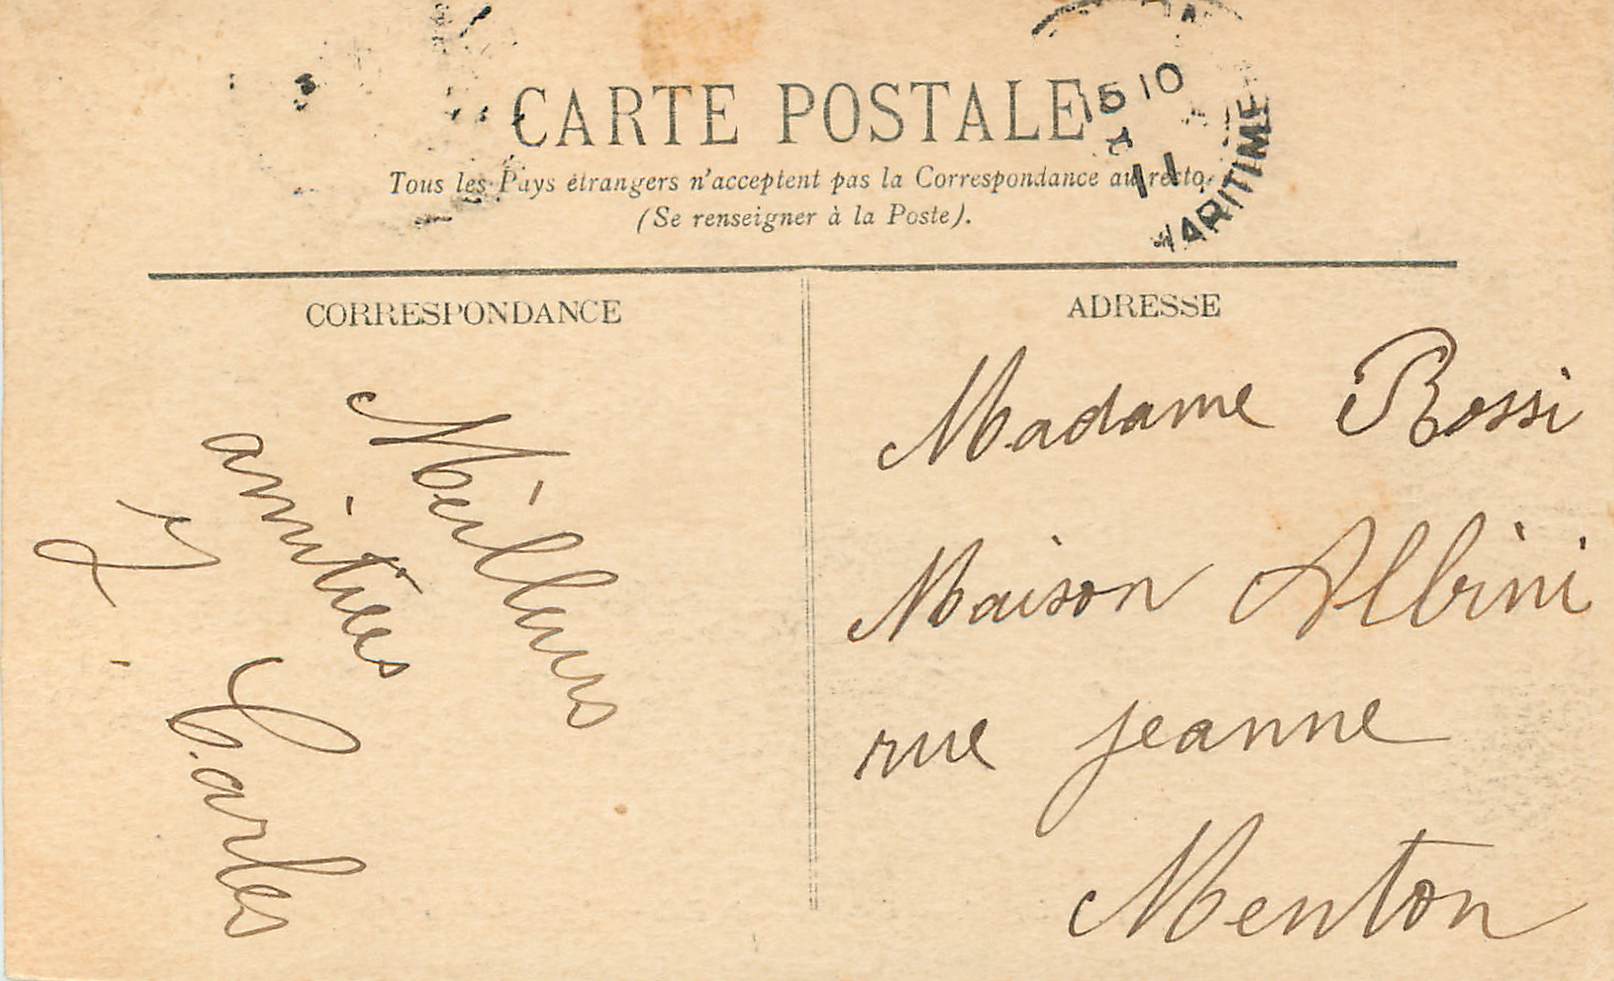 CARTE POSTALE
Tous les Pays étrangers n'acceptent pas la Correspondance au recto.
(Se renseigner à la Poste).
15 10
11
MARITIME
CORRESPONDANCE
ADRESSE
Meilleurs
amitiées
Carles
Madame Rossi
Maison Albini
rue jeanne
Menton